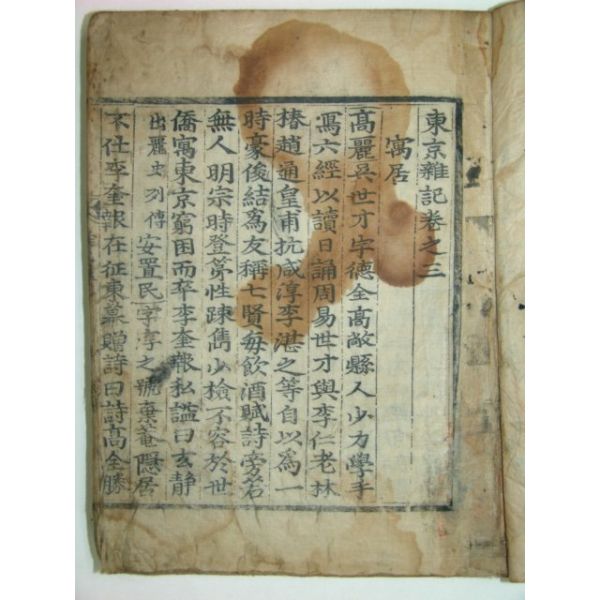 東京雜記卷之三
寓居
高麗吳世才字德全高敞縣人少力學手
寫六經以讀日誦周易世才與李仁老林
椿趙通皇甫抗咸淳李湛之等自以為一
時豪俊結為友稱七賢每飲酒賦詩旁若
無人明宗時登第性踈雋少檢不容於世
僑寓東京窮困而卒李奎報私謚曰玄靜
出麗史列傳 安置民字淳之號棄菴隱居
不仕李奎報在征東幕贈詩曰詩高全勝